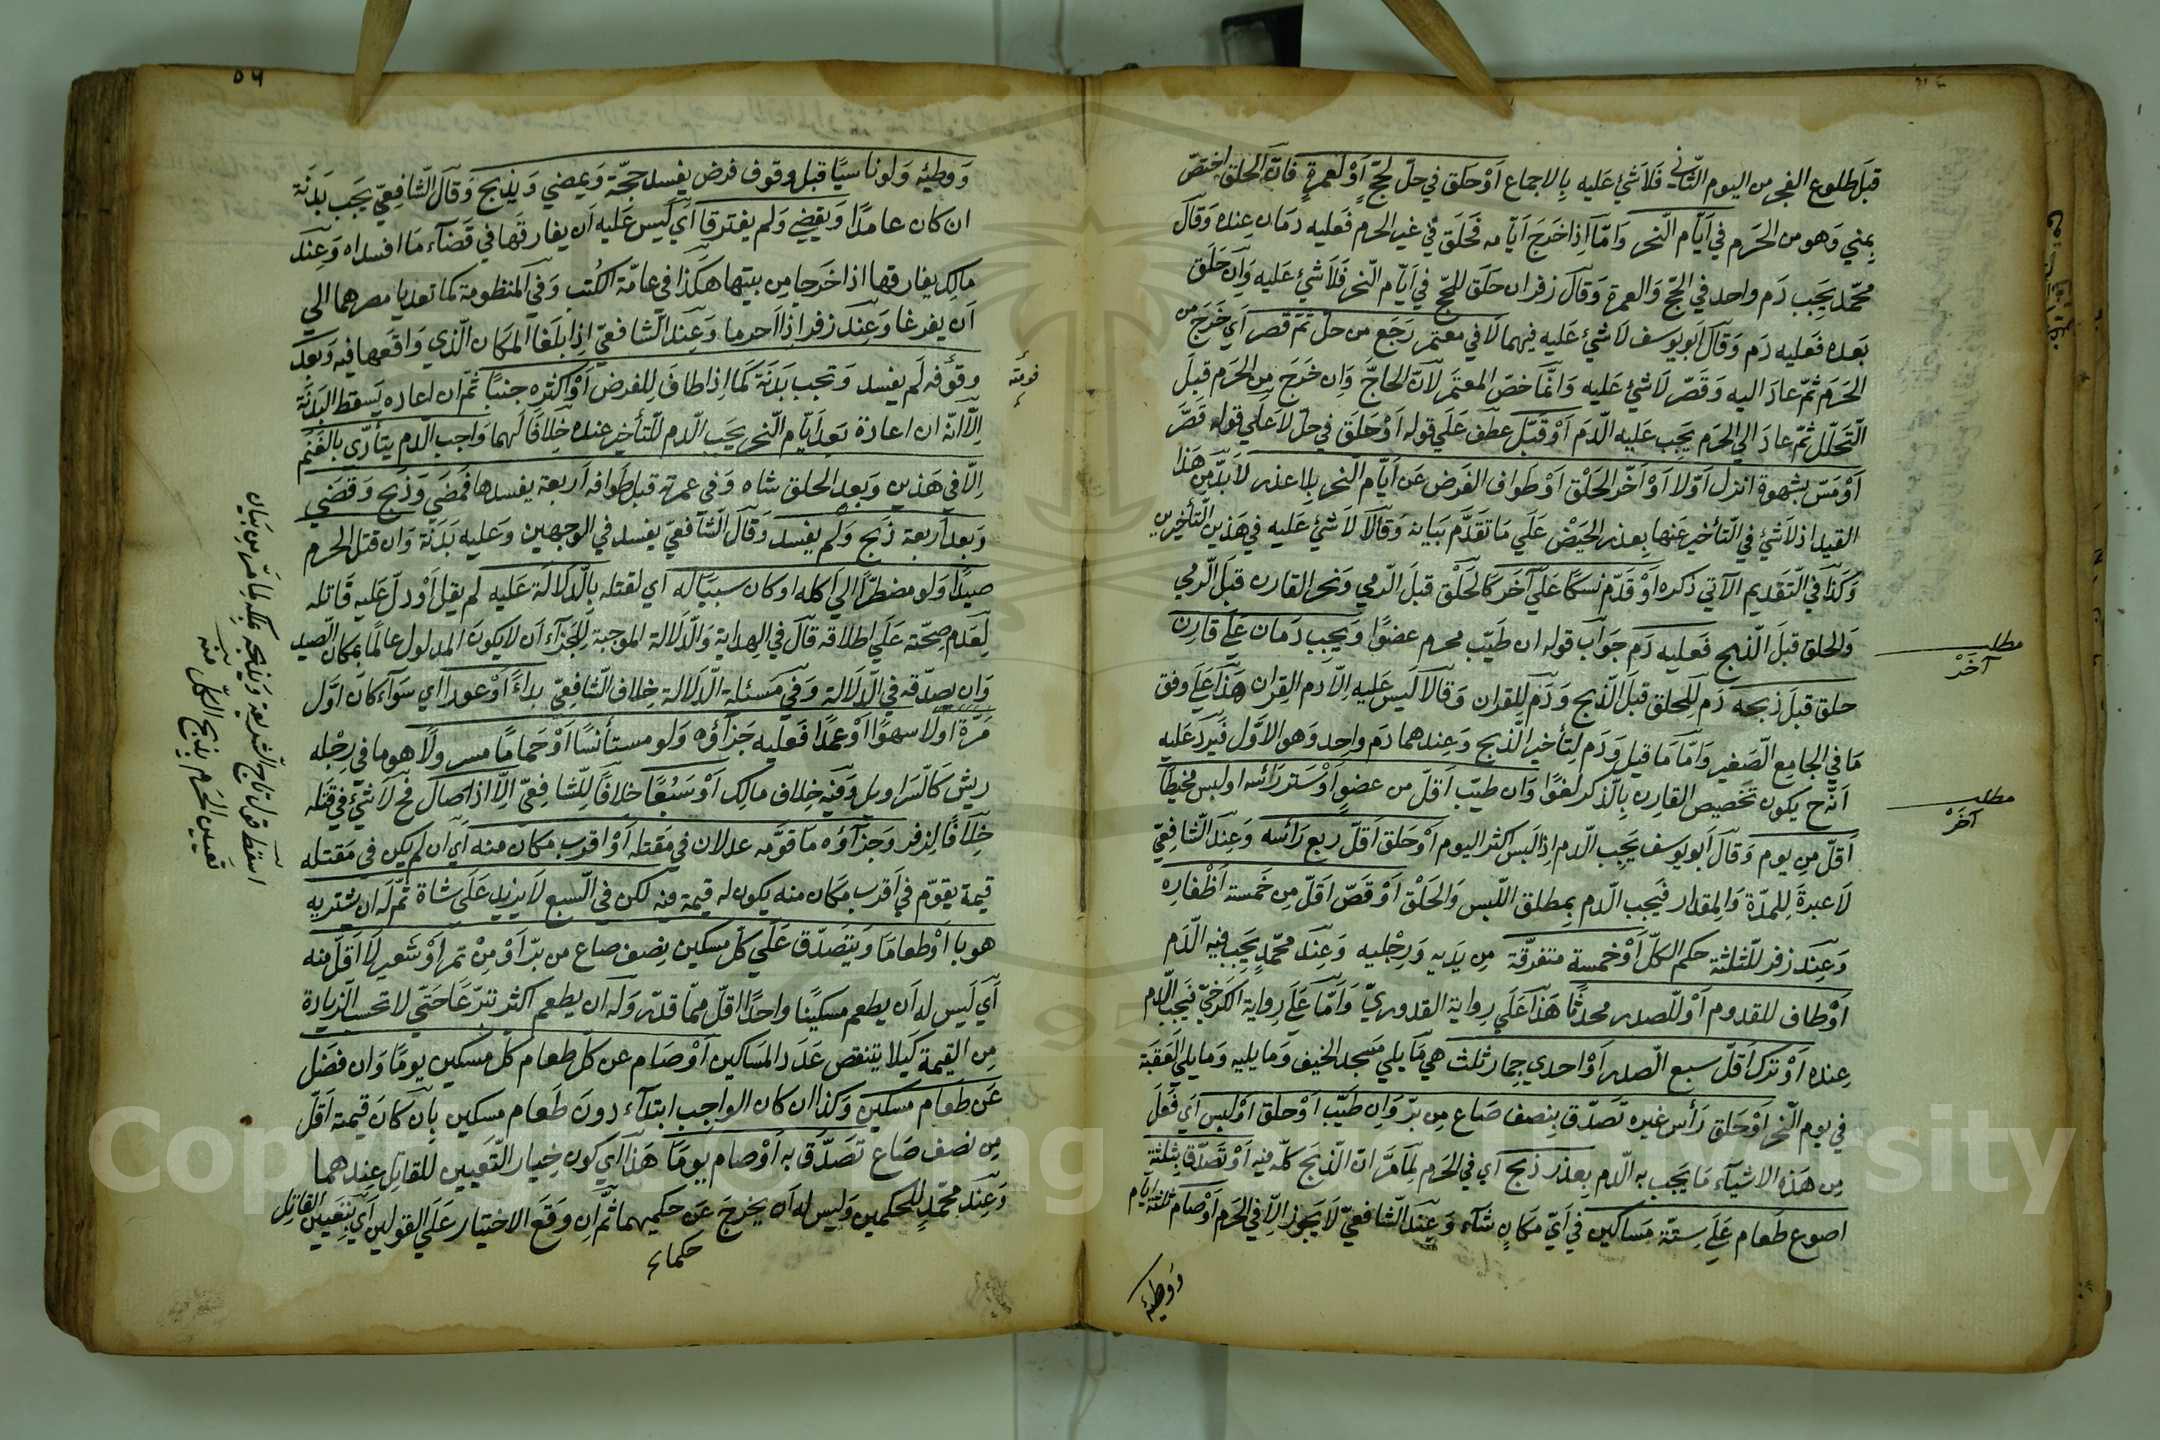 قبل طلوع الفجر من اليوم الثاني فلا شئ عليه بالاجماع او حلق في حل لحج او لعمرة فان الحلق اختص
بمني وهو من الحرم في ايام النحر واما اذا خرج ايامه فحلق في غير الحرم فعليه دمان عنده وقال
محمد يجب دم واحد في الحج والعمرة وقال زفر ان حلق للحج في ايام النحر فلا شئ عليه وان حلق
بعده فعليه دم وقال ابو يوسف لا شئ عليه فيهما لا في معتمر رجع من حل ثم قصر اي خرج من
الحرم ثم عاد اليه وقصر لا شئ عليه وانما خص المعتمر لان الحاج وان خرج من الحرم قبل
التحلل ثم عاد الي الحرم يجب عليه الدم او قبل عطف علي قوله او حلق في حل لا علي قوله قصر
او مس بشهوة انزل اولا او اخر الحلق او طواف الفرض عن ايام النحر بلا عذر لا بد من هذا
القيد اذ لا شئ في التأخير عنها بعذر الحيض علي ما تقدم بيانه وقالا لا شئ عليه في هذين التأخيرين
وكذا في التقديم الآتي ذكره او قدم نسكا علي آخر كالحلق قبل الرمي ونحر القارن قبل الرمي
والحلق قبل الذبح فعليه دم جواب قوله ان طيب محرم عضوا ويجب دمان علي قارن
حلق قبل ذبحه دم للحلق قبل الذبح ودم للقران وقالا ليس عليه الا دم القران هذا علي وفق
ما في الجامع الصغير واما ما قيل ودم لتأخير الذبح وعندهما دم واحد وهو الاول فيرد عليه
انه ح يكون تخصيص القارن بالذكر لغوا وان طيب اقل من عضو او ستر رائسه او لبس مخيطا
اقل من يوم وقال ابو يوسف يجب الدم اذا لبس اكثر اليوم او حلق اقل ربع رائسه وعند الشافعي
لا عبرة للمدة والمقدار فيجب الدم بمطلق اللبس والحلق او قص اقل من خمسة اظفاره
وعند زفر للثلثة حكم الكل او خمسة متفرقة من يديه ورجليه وعند محمد يجب فيه الدم
او طاف للقدوم او للصدر محدثا هذا علي رواية القدوري واما علي رواية الكرخي فيجب الدم
عنده او ترك اقل سبع الصدر او احدي جمار ثلث هي ما يلي مسجد الخيف وما يليه وما يلي العقبة
في يوم النحر او حلق رأس غيره تصدق بنصف صاع من بر وان طيب او حلق او لبس اي فعل
من هذه الاشياء ما يجب به الدم بعذر ذبح اي في الحرم لما مر ان الذبح كله فيه او تصدق بثلثة
اصوع طعام علي ستة مساكين في اي مكان شاء وعند الشافعي لا يجوز الا في الحرم او صام ثلثة ايام
ووطئه
مطلب
آخر
مطلب
آخر
٥٦
ووطئه ولو ناسيا قبل وقوف فرض يفسد حجه ويمضي ويذبح وقال الشافعي يجب بدنة
ان كان عامدا ويقضي ولم يفترقا اي ليس عليه ان يفارقها في قضاء ما افسداه وعند
مالك يفارقها اذا خرجا من بيتها هكذا في عامة الكتب وفي المنظومة كما تعديا مصرهما الي
ان يفرغا وعند زفر اذا احرما وعند الشافعي اذا بلغا المكان الذي واقعها فيه وبعد
وقوفه لم يفسد وتجب بدنة كما اذا طاف للفرض او اكثره جنبا ثم ان اعاده يسقط البدنة
الا انه ان اعاده بعد ايام النحر يجب الدم للتأخير عنده خلافا لهما وواجب الدم يتأدي بالغنم
الا في هذين وبعد الحلق شاه وفي عمرته قبل طوافه اربعة يفسدها فمضي وذبح وقضي
وبعد اربعة ذبح ولم يفسد وقال الشافعي يفسد في الوجهين وعليه بدنة وان قتل المحرم
صيدا ولو مضطرا الي اكله او كان سببا له اي لقتله بالدلالة عليه لم يقل او دل عليه قاتله
لعدم صحته علي اطلاقه قال في الهداية والدلالة الموجبة للجزاء ان لا يكون المدلول عالما بمكان الصيد
وان يصدقه في الدلالة وفي مسئلة الدلالة خلاف الشافعي بداء او عودا اي سواء كان اول
مرة اولا سهوا او عمدا فعليه جزاؤه ولو مستأنسا او حماما مسرولا هو ما في رجله
ريش كالسراويل وفيه خلاف مالك او سبعا خلافا للشافعي الا اذا صال فح لا شئ في قتله
خلافا لزفر وجزاؤه ما قومه عدلان في مقتله او اقرب مكان منه اي ان لم يكن في مقتله
قيمة يقوم في اقرب مكان منه يكون له قيمة فيه لكن في السبع لا يزيد علي شاة ثم له ان يشتريه
هديا او طعاما ويتصدق علي كل مسكين بنصف صاع من بر او من تمر او شعير لا اقل منه
اي ليس له ان يطعم مسكينا واحدا اقل مما قدر وله ان يطعم اكثر تبرعا حتي لا تحسب الزيادة
من القيمة كيلا ينتقص عدد المساكين او صام عن كل طعام كل مسكين يوما وان فضل
عن طعام مسكين وكذا ان كان الواجب ابتداء دون طعام مسكين بان كان قيمته اقل
من نصف صاع تصدق به او صام يوما هذا اي كون خيار التعيين للقاتل عندهما
وعند محمد للحكمين وليس له ان يخرج عن حكمهما ثم ان وقع الاختيار علي القولين اي بتعيين القاتل
حكماء
اسقط قول تاج الشريعة ويذبحه بمكة لما مر من بيان
تعيين الحرم بذبح الكل منه
Copyright © King Saud University